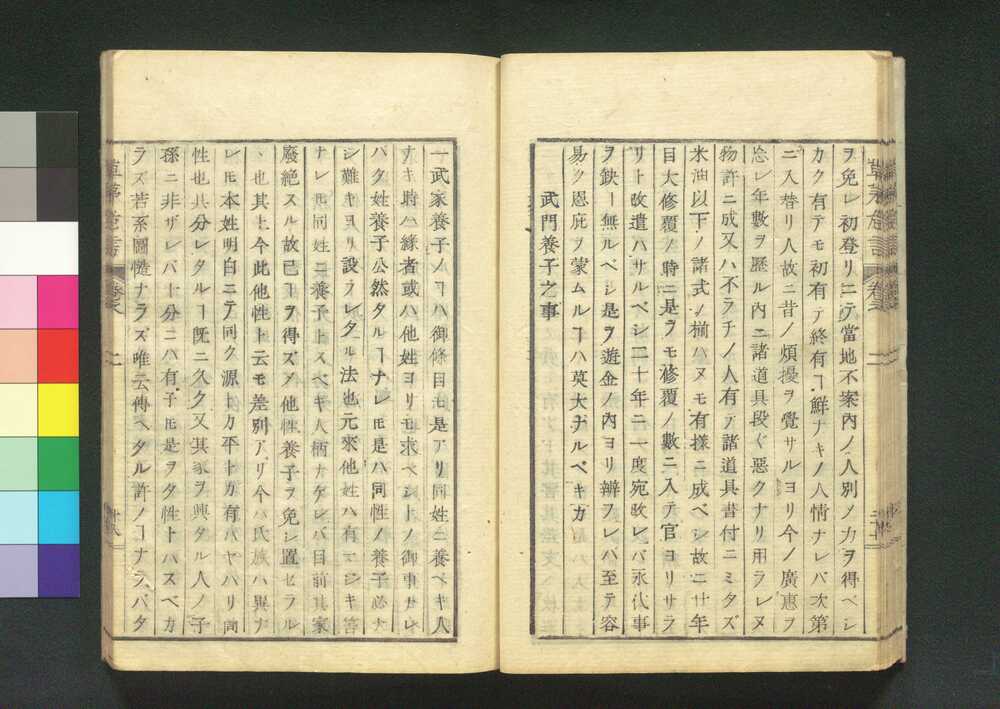 ヲ免レ初登リニテ當地不案内ノ人別ノ力ヲ得ベシ
カク有テモ初有テ終有ヿ鮮ナキノ人情ナレバ次第
ニ入替リ人故ニ昔ノ煩擾ヲ覺サルヨリ今ノ廣惠ヲ
忘レ年數ヲ歴ル内ニ諸道具段々惡クナリ用ラレヌ
物許ニ成又ハ不ラチノ人有テ諸道具書付ニミタズ
米油以下ノ諸式ノ揃ハヌモ有樣ニ成ベシ故ニ廿年
目大修覆ノ時ニ是ヲモ修覆ノ數ニ入テ官ヨリサラ
リト改遣ハサルベシ二十年ニ一度宛改レバ永代事
ヲ鈌ヿ無ルベシ是ヲ遊金ノ内ヨリ辨フレバ至テ容
易ク恩庇ヲ蒙ムルヿハ莫大ナルベキカ
武門養子之事
一武家養子ノヿハ御條目モ是アリ同姓ニ養ベキ人
ナキ時ハ縁者或ハ他姓ヨリモ求ベシトノ御事サレ
バタ姓養子公然タルヿナレ𪜈是ハ同性ノ養子必ナ
シ難キヨリ設ラレタル法也元來他姓ハ有マジキ筈
ナレ𪜈同姓ニ養子トスベキ人柄ナケレバ目前其家
廢絶スル故已ヿヲ得ズノ他性養子ヲ免シ置セラル
ヽ也其上今此他性ト云モ差別アリ今ハ氏族ハ異ナ
レ𪜈本姓明白ニテ同ク源トカ平トカ有バヤハリ同
性也共分レタルヿ既ニ久ク又其家ヲ興タル人ノ子
孫ニ非ザレバ十分ニハ有子𪜈是ヲタ性トハスベカ
ラズ若系圖慥ナラズ唯云傳ヘタル許ノヿナラバタ
草茅危言